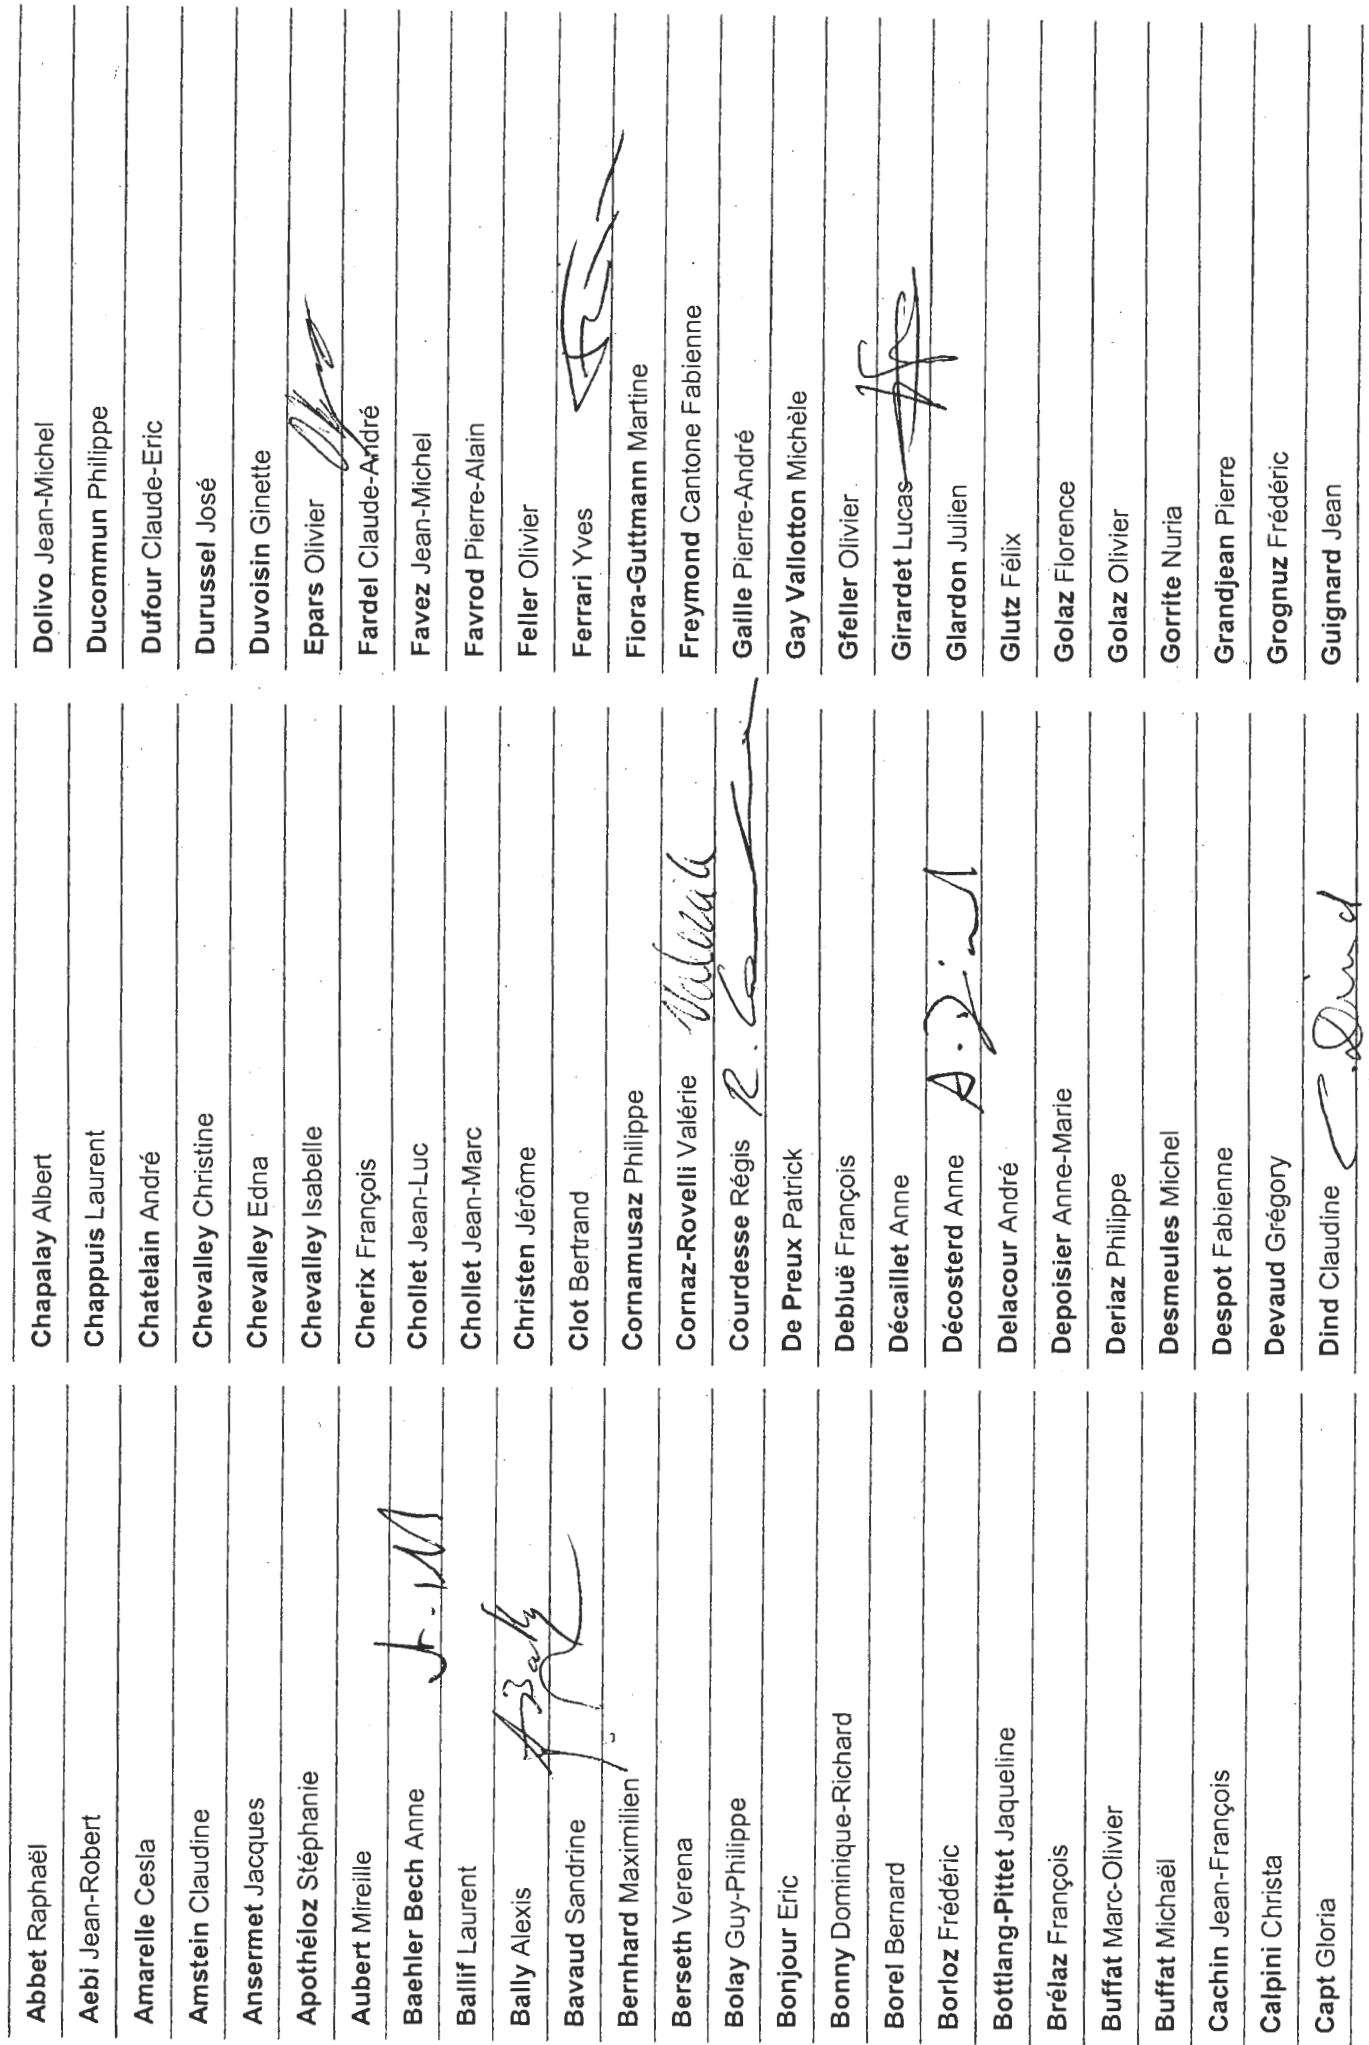 Abbet Raphaël
Aebi Jean-Robert
Amarelle Cesla
Amstein Claudine
Ansermet Jacques
Apothéloz Stéphanie
Aubert Mireille
Baehler Bech Anne
Ballif Laurent
Bally Alexis ABally
Bavaud Sandrine
Bernhard Maximilien
Berseth Verena
Bolay Guy-Philippe
Bonjour Eric
Bonny Dominique-Richard
Borel Bernard
Borloz Frédéric
Bottlang-Pittet Jaqueline
Brélaz François
Buffat Marc-Olivier
Buffat Michaël
Cachin Jean-François
Calpini Christa
Capt Gloria
Chapalay Albert
Chappuis Laurent
Chatelain André
Chevalley Christine
Chevalley Edna
Chevalley Isabelle
Cherix François
Chollet Jean-Luc
Chollet Jean-Marc
Christen Jérôme
Clot Bertrand
Cornamusaz Philippe
Cornaz-Rovelli Valérie
Courdesse Régis R.
De Preux Patrick
Debluë François
Décaillet Anne
Décosterd Anne A.
Delacour André
Depoisier Anne-Marie
Deriaz Philippe
Desmeules Michel
Despot Fabienne
Devaud Grégory
Dind Claudine C. Dind
Dolivo Jean-Michel
Ducommun Philippe
Dufour Claude-Eric
Durussel José
Duvoisin Ginette
Epars Olivier
Fardel Claude-André
Favez Jean-Michel
Favrod Pierre-Alain
Feller Olivier
Ferrari Yves
Fiora-Guttmann Martine
Freymond Cantone Fabienne
Gaille Pierre-André
Gay Vallotton Michèle
Gfeller Olivier
Girardet Lucas
Glardon Julien
Glutz Félix
Golaz Florence
Golaz Olivier
Gorrite Nuria
Grandjean Pierre
Grognuz Frédéric
Guignard Jean